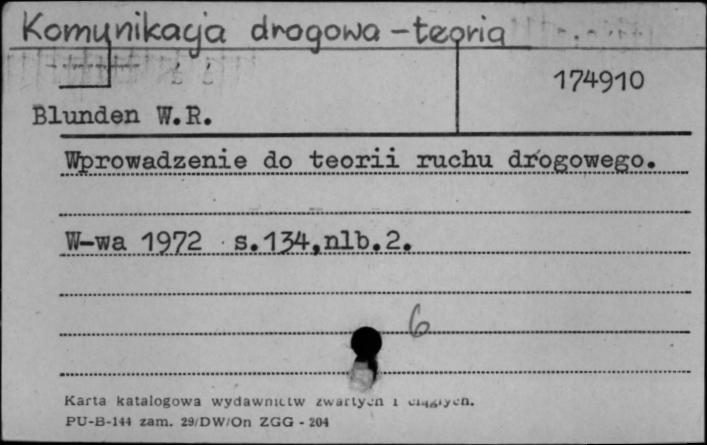 Komunikacja drogowa - teoria
174910
Blunden W.R.
Wprowadzenie do teorii ruchu drogowego.
W-wa 1972 s.134,nlb.2.
6
Karta katalogowa wydawnictw zwartych i ciągłych.
PU-B-144 zam. 29/DW/On ZGG - 204